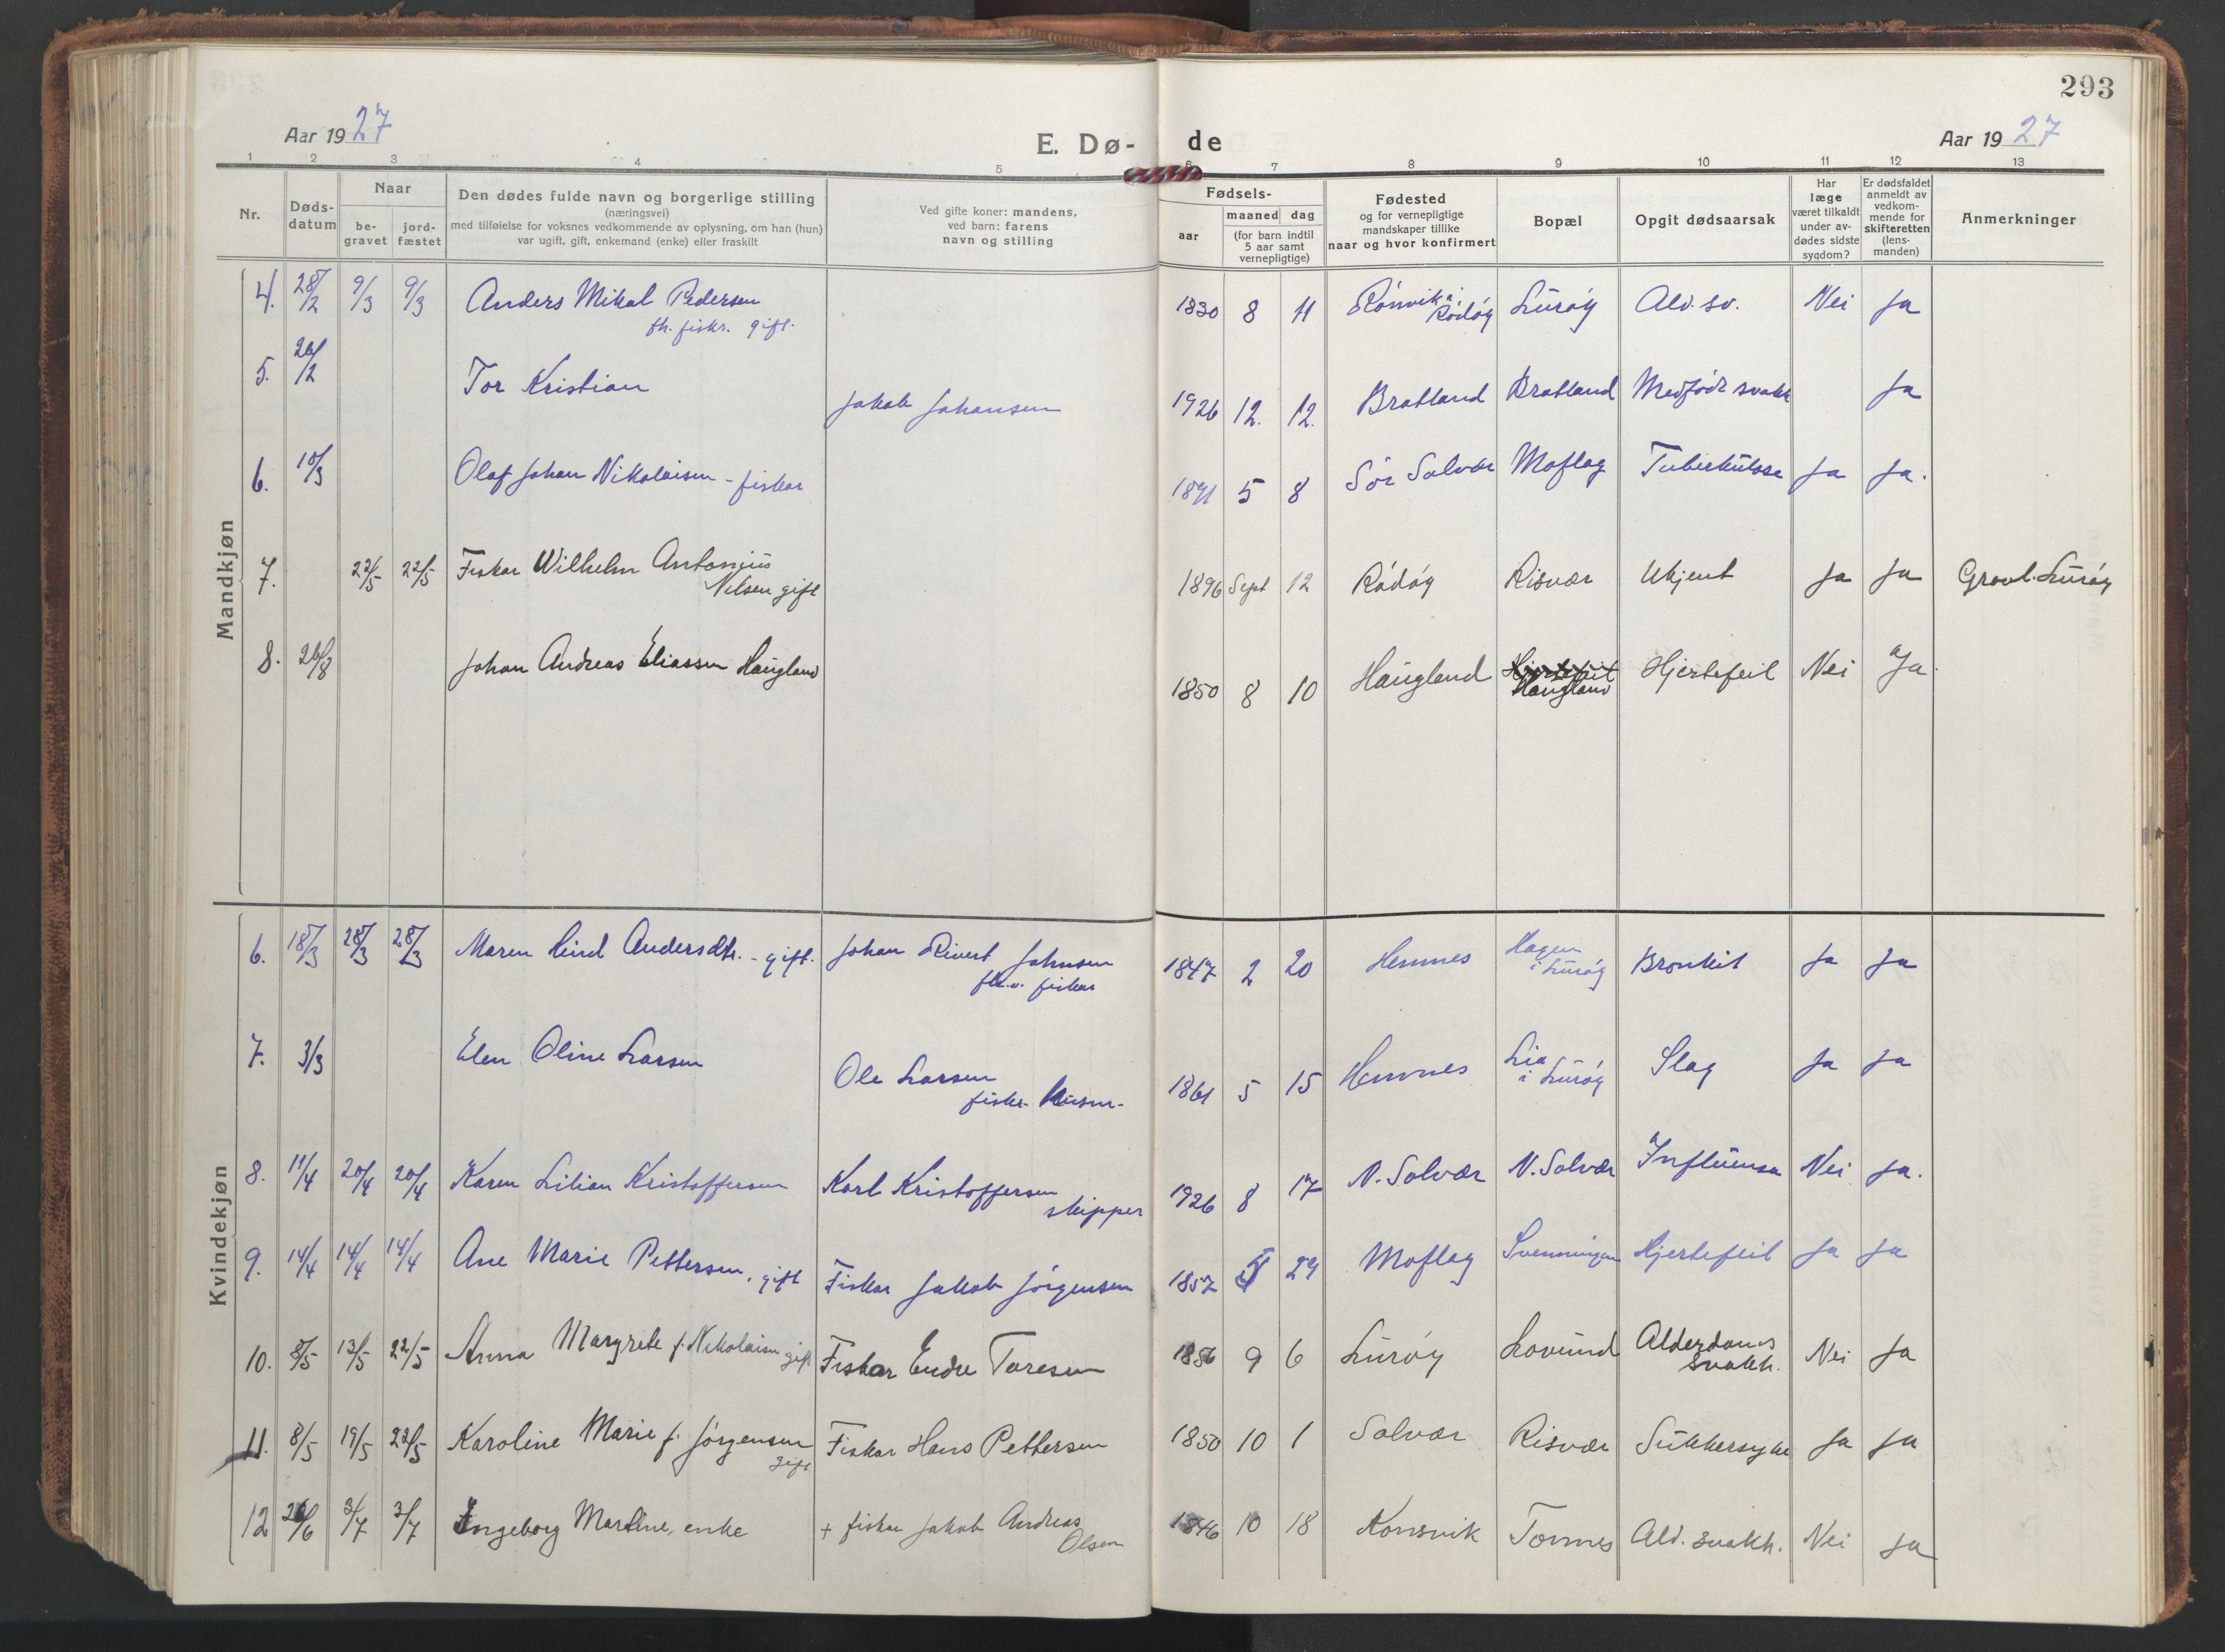 293
Aar 1927
E. Dø-
de
Aar 1927
1 2 3 4 5 6 7 8 9 10 11 12 13
Nr.
Døds-
datum
Naar
be-
gravet
jord-
fæstet
Den dødes fulde navn og borgerlige stilling
(næringsvei)
med tilføielse for voksnes vedkommende av oplysning, om han (hun)
var ugift, gift, enkemand (enke) eller fraskilt
Ved gifte koner: mandens,
ved barn: farens
navn og stilling
Fødsels-
aar
maaned dag
(for barn indtil
5 aar samt
vernepligtige)
Fødested
og for vernepligtige
mandskaper tillike
naar og hvor konfirmert
Bopæl
Opgit dødsaarsak
Har
læge
været tilkaldt
under av-
dødes sidste
sygdom?
Er dødsfaldet
anmeldt av
vedkom-
mende for
skifteretten
(lens-
manden)
Anmerkninger
Mandkjøn
4. 28/2 9/3 9/3 Anders Mikal Pedersen 1830 8 11 Rønvik i Rødøy Lurøy Ald. sv. Nei Ja
fh. fisker. gift.
5. 26/2 Tor Kristian Jakob Johansen 1926 12. 12. Bratland Bratland Medfødt svakh Ja
6. 10/3 Olaf Johan Nikolaisen - fiskar 1891 5 8 Sør Solvær Moflag Tuberkulose Ja Ja.
7. 22/5 22/5 Fiskar Wilhelm Antonius 1896 Sept 12 Rødøy Risvær Ukjent Ja Ja Gravl. Lurøy
Nilsen gift
8. 26/8 Johan Andreas Eliassen Haugland 1850 8 10 Haugland Hjertefeil Hjertefeil Nei Ja.
Haugland
Kvindekjøn
6. 18/3 28/3 28/3 Maren Andersdtr. - gift. Johan Rivert Johnsen 1847 2 20 Hemnes Hagen Bronkit Ja Ja
fh.v. fiskar i Lurøy
7. 3/3 Elen Oline Larsen Ole Larsen 1861 5 15 Hemnes Lia Slag Ja Ja
fisker- husm- i Lurøy
8. 11/4 20/4 20/4 Karen Lilian Kristoffersen Karl Kristoffersen 1926 8 17 N. Solvær N. Solvær Influensa Nei Ja.
skipper
9. 14/4 14/4 14/4 Ane Marie Pettersen, gift Fiskar Jakob Jørgensen 1857 5 29 Moflag Svenningen Hjertefeil Ja Ja
10. 8/5 13/5 22/5 Anna Margrete f. Nikolaisen gift Fiskar Endre Toresen 1856 9 6 Lurøy Lovund Alderdoms Nei Ja
svakh.
11. 8/5 19/5 22/5 Karoline Marie f. Jørgensen Fiskar Hans Pettersen 1850 10 1 Solvær Risvær Sukkersyke Ja Ja
gift
12 26/6 3/7 3/7 Ingeborg Martine, enke + fiskar Jakob Andreas 1846 10 18 Konsvik Tonnes Ald. svakh. Nei Ja
Olsen